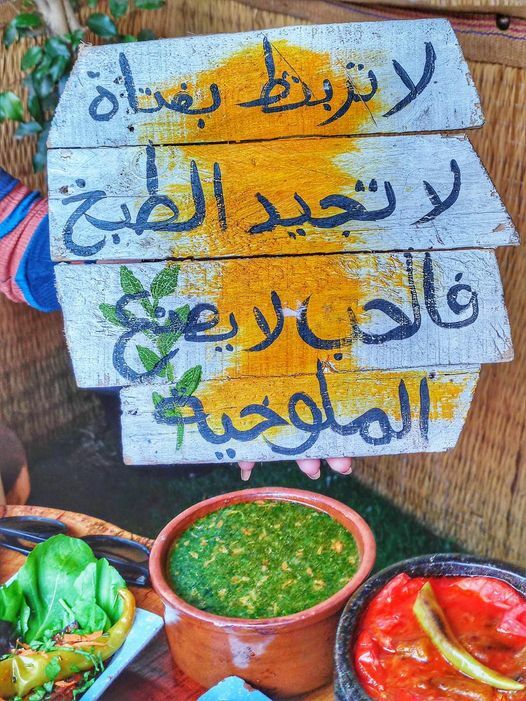 لا تربتط بفتاة
لا تجيد الطبخ
فالحب لا يصنع
الملوخيه